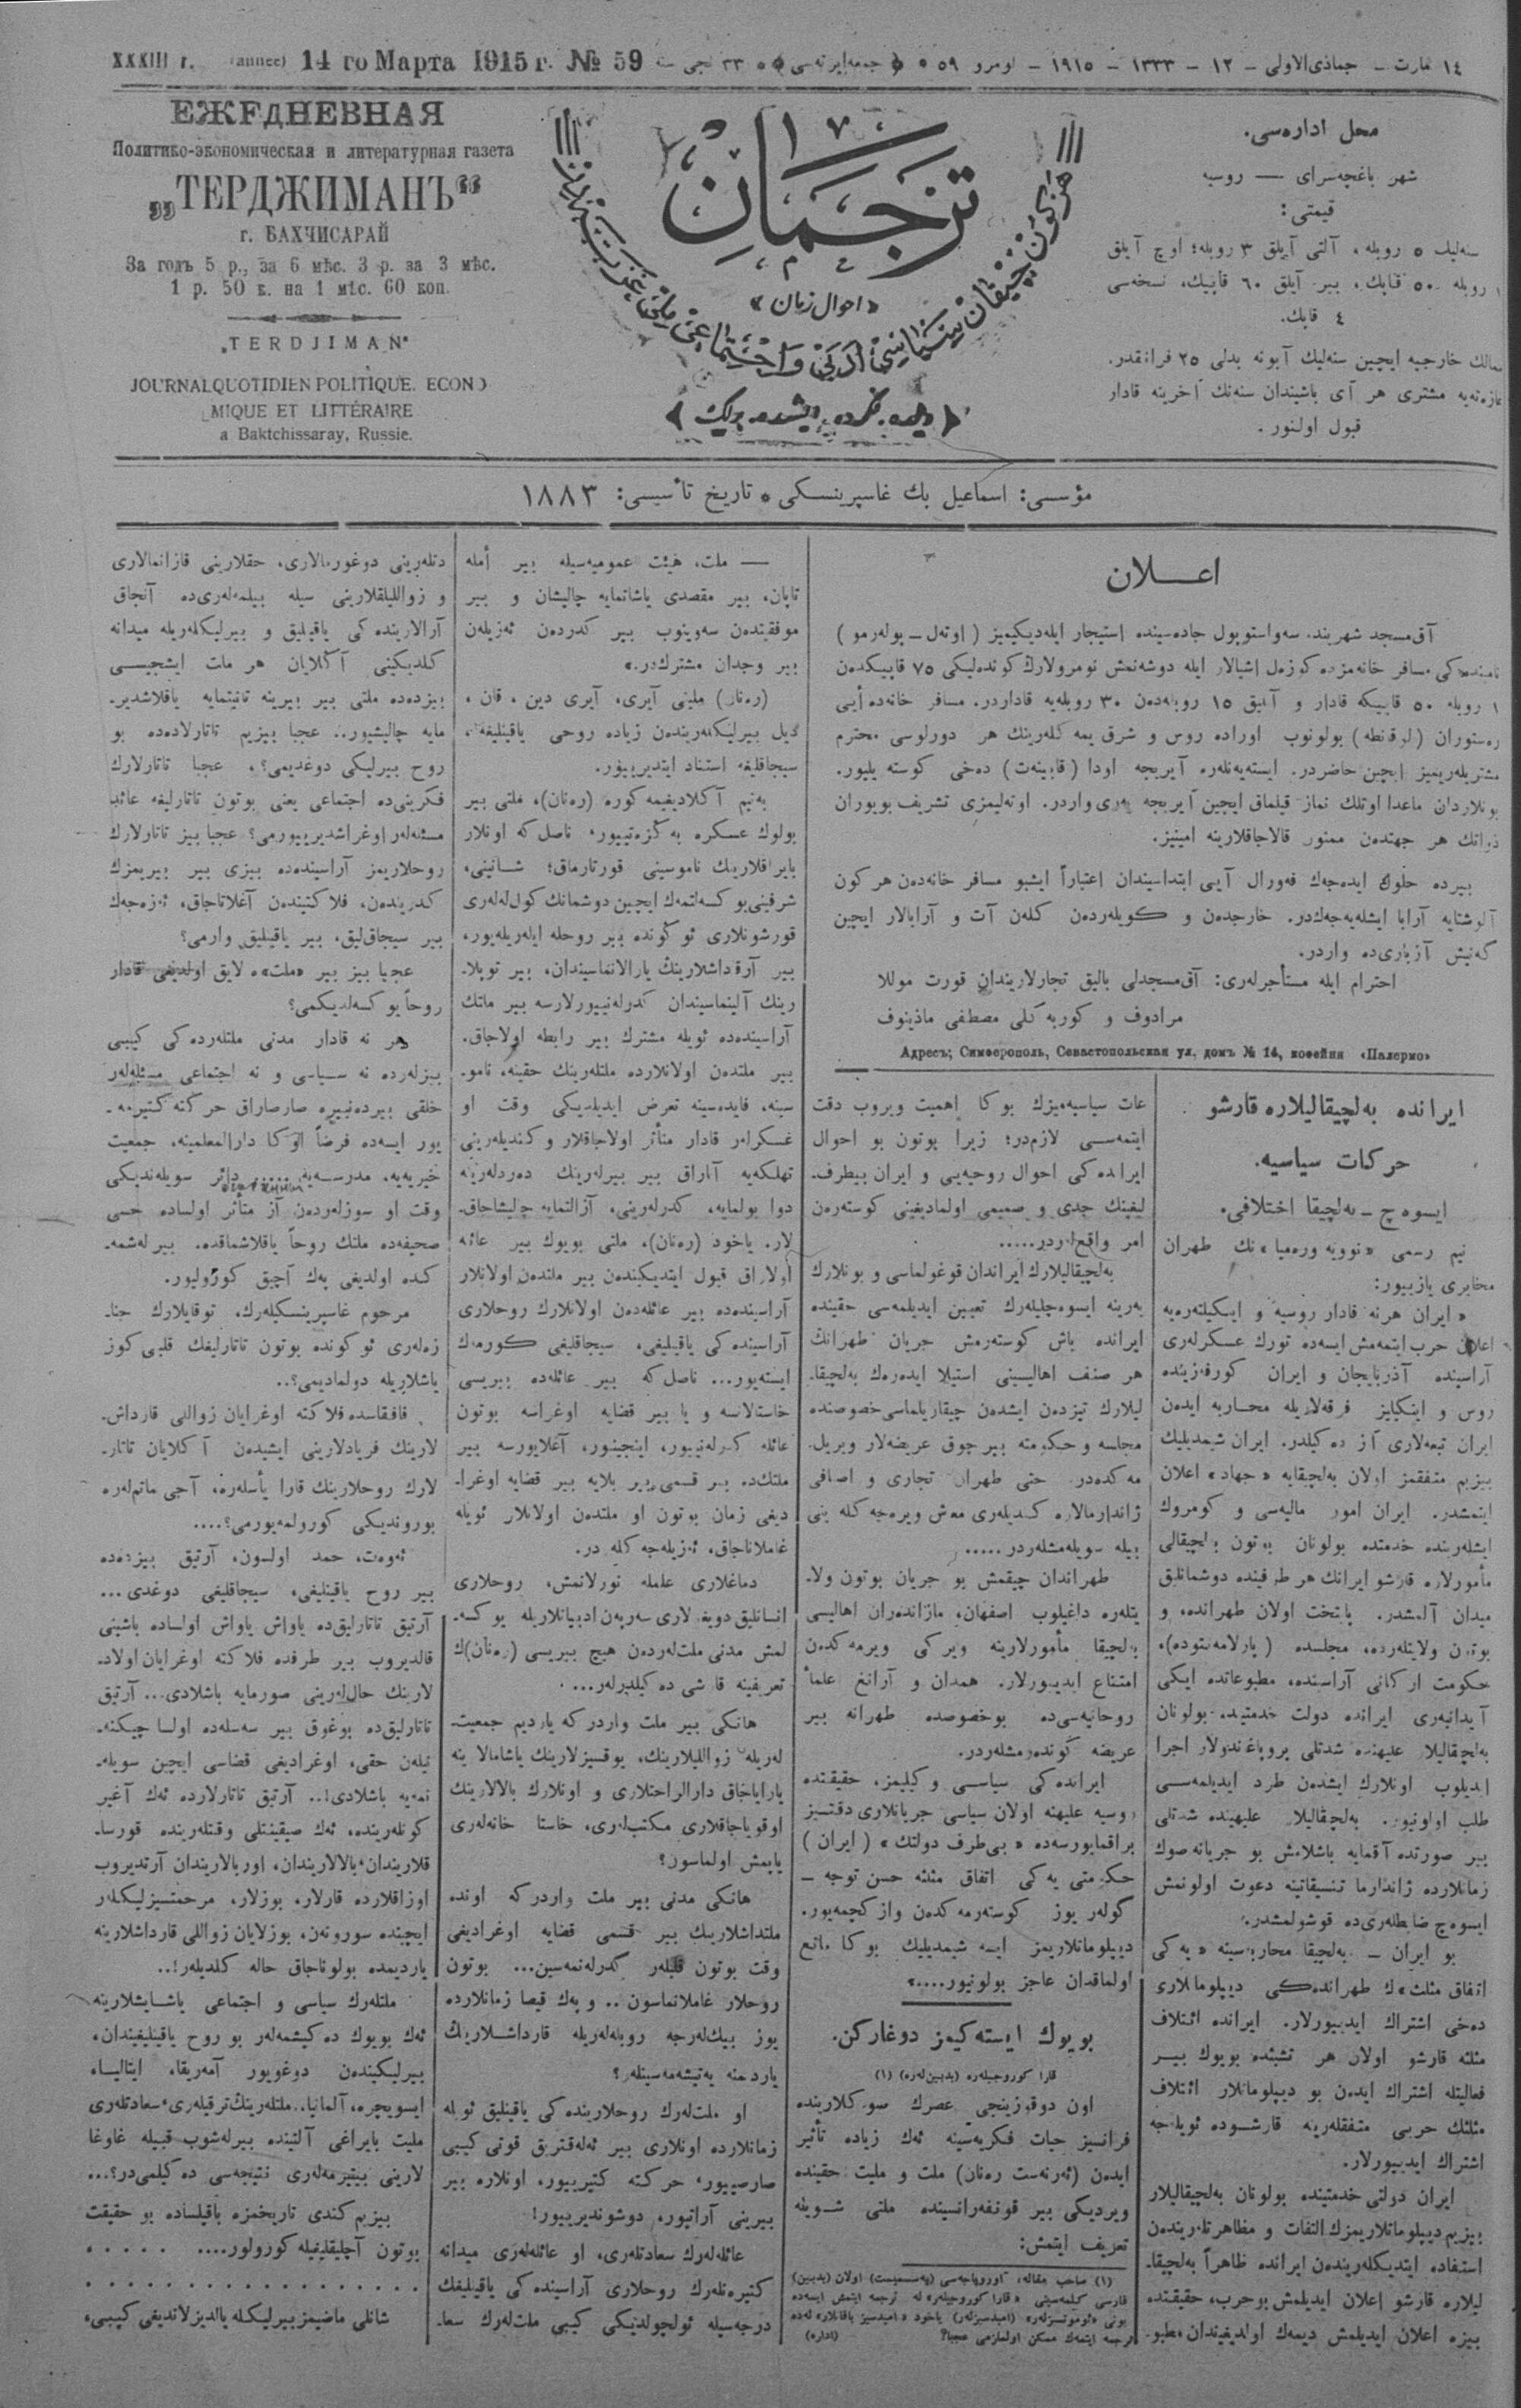 XXXIII г. (année) 14 го Марта 1915 г. № 59 ۱٤ مارت – جماذی‌الاولی – ۱۲ – ۱۳۳۳ – ۱۹۱٥ – نومرو ٥۹ • ﴿جمعه‌ایرته‌سی﴾ • ۳۳ نجی
ЕЖЕДНЕВНАЯ
Политико-экономическая и литературная газета
„ТЕРДЖИМАНЪ“
г. БАХЧИСАРАЙ
За годъ 5 р., за 6 мѣс. 3 р. за 3 мѣс.
1 р. 50 к. на 1 мѣс. 60 коп.
„TERDJIMAN“
JOURNAL QUOTIDIEN POLITIQUE. ECONO
MIQUE ET LITTÉRAIRE
a Baktchissaray, Russie.
ترجمان
«احوال زمان»
هرکون چیقان سیاسی، ادبی و اجتماعی ملی غزته‌در
﴿دیلده، فکرده، ایشده برلك﴾
محل اداره‌سی.
شهر باغچه‌سرای — روسیه
قیمتی:
سنه‌لیك ٥ روبله، آلتی آیلق ۳ روبله؛ اوچ آیلق
۱ روبله ٥۰ قاپك، بیر آیلق ٦۰ قاپیك، نسخه‌سی
٤ قاپك.
ممالك خارجیه ایچین سنه‌لیك آبونه بدلی ۲٥ فرانقدر.
غازه‌ته‌یه مشتری هر آی باشیندان سنه‌نك آخرینه قادار
قبول اولنور.
مؤسسی: اسماعیل بك غاسپرینسکی • تاریخ تأسیسی: ۱۸۸۳
اعـــلان
آق‌مسجد شهرینده سه‌واستوپول جاده‌سینده استیجار ایله‌دیکیمیز (اوته‌ل ــ پوله‌رمو)
نامینده‌کی مسافر خانه‌مزده کوزه‌ل اشیالار ایله دوشه‌نمش نومرولارڭ کونده‌لیکی ۷٥ قاپیکدەن
۱ روبله ٥۰ قاپیکه قادار و آیلیق ۱٥ روبله‌دەن ۳۰ روبله‌یه قاداردر. مسافر خانه‌ده أیی
ره‌ستوران (لوقانطه) بولونوب اوراده روس و شرق یمه‌کله‌رینك هر دورلوسی محترم
مشتریله‌ریمیز ایچین حاضردر. ایسته‌یه‌نله‌ره آیریجه اودا (قابینه‌ت) ده‌خی کوسته‌ریلیور.
بونلاردان ماعدا اوتلك نماز قیلماق ایچین آیریجه یه‌ری واردر. اوته‌لیمزی تشریف بویوران
ذواتك هر جهتدەن ممنون قالاجاقلارینه امینیز.
بیرده حلول ایده‌جه‌ك فه‌ورال آیی ابتداسیندان اعتباراً ایشبو مسافر خانه‌دەن هر کون
آلوشتایه آرابا ایشله‌یه‌جه‌كدر. خارجدەن و کویله‌ردەن کله‌ن آت و آرابالار ایچین
که‌نیش آزباری‌ده واردر.
احترام ایله مستأجرله‌ری: آق‌مسجدلی بالیق تجارلاریندان قورت موللا
مرادوف و کوربه‌کلی مصطفی ماذینوف
Адресъ; Симферополь, Севастопольская ул. домъ № 14, кофейня «Палермо»
ایرانده به‌لچیقالیلاره قارشو
حرکات سیاسیه.
ایسوه‌چ ــ به‌لچیقا اختلافی.
نیم رسمی «نوویه وره‌میا»نك طهران
مخابری یازییور:
«ایران هرنه قادار روسیه و اینکیلتەره‌یه
اعلان حرب ایتمه‌مش ایسه‌ده تورك عسکرله‌ری
روس و اینکیلیز فرقه‌لاریله محاربه ایدەن
ایران تبعه‌لاری آز ده‌کیلدر. ایران شیمدیلیك
بیزیم متفقمز اولان به‌لچیقایه «جهاد» اعلان
ایتمشدر. ایران امور مالیه‌سی و کومروك
مأمورلاره قارشو ایرانك هر طرفینده دوشمانلیق
میدان آلمشدر. پایتخت اولان طهرانده، و
بوتون ولایتله‌رده، مجلسده (پارلامه‌نتوده)،
حکومت ارکانی آراسنده، مطبوعاتده ایکی
به‌لچیقالیلار علیهنده شدتلی پروپاغندولار اجرا
ایدیلوب اونلارك ایشدەن طرد ایدیلمه‌سی
طلب اولونیور. به‌لچیقالیلار علیهینده شدتلی
بیر صورتده آقمایه باشلامش بو جریانه صوك
زمانلارده ژاندارما تنسیقاتینه دعوت اولونمش
ایسوه‌چ ضابطله‌ری‌ده قوشولمشدر.
بو ایران ــ به‌لچیقا محاربه‌سینه «یه‌کی
اتفاق مثلث»ك طهرانده‌کی دیپلوماتلاری
ده‌خی اشتراك ایدییورلار. ایرانده ائتلاف
مثلثه قارشو اولان هر تشبثده بویوك بیــر
فعالیتله اشتراك ایدەن بو دیپلوماتلار ائتلاف
مثلثك حربی متفقله‌رینه قارشوده ئویله‌جه
اشتراك ایدییورلار.
ایران دولتی خدمتینده بولونان به‌لچیقالیلار
بیزیم دیپلوماتلاریمزك التفات و مظاهرتله‌ریندەن
استفاده ایتدیکله‌ریندەن ایرانده ظاهراً به‌لچیقا‌ـ
لیلاره قارشو اعلان ایدیلمش بوحرب، حقیقتده
بیزه اعلان ایدیلمش دیمه‌ك اولدیغیندان مطبو‌ـ
عات سیاسیه‌میزك بوکا اهمیت ویروب دقت
ایتمه‌ســی لازم‌در؛ زیرا بوتون بو احوال
ایرانده‌کی احوال روحیه‌یی و ایران بیطرف‌ـ
لیغینك جدی و صمیمی اولمادیغینی کوسته‌رەن
امر واقع‌لردر.....
به‌لچیقالیلارك ایراندان قوغولماسی و بونلارك
یه‌رینه ایسوه‌چلیله‌رك تعیین ایدیلمه‌سی حقینده
ایرانده باش کوسته‌رمش جریان طهرانك
هر صنف اهالیسینی استیلا ایده‌ره‌ك به‌لچیقا‌ـ
لیلارك تیزدەن ایشدەن چیقاریلماسی خصوصنده
مجلسه و حکومته بیر چوق عریضه‌لار ویریل‌ـ
مه‌کده‌در. حتی طهران تجاری و اصنافی
ژاندارمالاره کندیله‌ری معاش ویره‌جه‌کله‌رینی
بیله سویله‌مشله‌ردر.....
طهراندان چیقمش بو جریان بوتون ولا‌ـ
یتله‌ره داغیلوب اصفهان، مازانده‌ران اهالیسی
به‌لچیقا مأمورلارینه ویرکی ویرمه‌کدەن
امتناع ایدییورلار.
روحانیه‌سی‌ده بوخصوصده طهرانه بیر
عریضه کونده‌رمشله‌ردر.
ایرانده‌کی سیاسی وکیلمز، حقیقتده
روسیه علیهنه اولان سیاسی جریانلاری دقتسیز
براقمایورسه‌ده «بی‌طرف دولتك» (ایران)
حکومتی یه‌کی اتفاق مثلثه حسن توجه ــ
کوله‌ر یوز کوسته‌رمه‌کدەن وازکچمه‌یور.
دیپلوماتلاریمز ایسه شیمدیلیك بوکا مانع
اولماقدان عاجز بولونیور....»
بویوك ایسته‌کیمز دوغارکن.
قارا کوروجیله‌ره (بدبین‌له‌ره) (۱)
اون دوقوزینجی عصرك صوکلارینده
فرانسیز حیات فکریه‌سینه ئه‌ك زیاده تأثیر
ایدەن (ئه‌رنه‌ست ره‌نان) ملت و ملیت حقینده
ویردیکی بیر قونفه‌رانسینده ملتی شــویله
تعریف ایتمش:
(۱) صاحب مقاله، آوروپاجه‌سی (په‌سسیمیست) اولان (بدبین)
فارسی کلمه‌سینی «قارا کوروجیله‌ر» له ترجمه ایتمش ایسه‌ده
بونی «ئوموتسزله‌ر» (امیدسیزله‌ر) یاخود «امیدسیز باقانلار» له‌ده
ترجمه ایتمه‌ك ممکن اولمازمی عجبا؟ (اداره)
— ملت، هیئت عمومیه‌سیله بیر أمله
تاپان، بیر مقصدی یاشاتمایه چالیشان و بیر
موفقیتدەن سه‌وینوب بیر کدردەن ئه‌زیله‌ن
بیر وجدان مشترك‌در.»
(ره‌نان) ملیتی آیری، آیری دین، قان،
دیل بیرلیکله‌ریندەن زیاده روحی یاقینلیغه،
سیجاقلیغه استناد ایتدیرییور.
به‌نیم آکلادیغیمه کوره (ره‌نان)، ملتی بیر
بولوك عسکره به‌کزه‌تییور، ناصل که اونلار
بایراقلارینك ناموسینی قورتارماق؛ شــانینی،
شرفینی یوکسه‌لتمه‌ك ایچین دوشمانك کولله‌له‌ری
قورشونلاری ئوکونده بیر روحله ایله‌ریله‌یور،
بیر آرقداشلارینك یارالانماسیندان، بیر توپلا‌ـ
رینك آلینماسیندان کدرله‌نییورلارسه بیر ملتك
آراسینده‌ده ئویله مشترك بیر رابطه اولاجاق.
بیر ملتدەن اولانلارده ملتله‌رینك حقینه، نامو‌ـ
سینه، فایده‌سینه تعرض ایدیلدیکی وقت او
عسکرلر قادار متأثر اولاجاقلار و کندیله‌رینی
تهلکه‌یه آتاراق بیر بیرله‌رینك ده‌ردله‌رینه
دوا بولمایه، کدرله‌رینی، آزالتمایه چالیشاجاق‌ـ
لار. یاخود (ره‌نان)، ملتی بویوك بیر عائله
اولاراق قبول ایتدیکیندەن بیر ملتدەن اولانلار
آراسینده‌ده بیر عائله‌دەن اولانلارك روحلاری
آراسینده‌کی یاقینلیغی، سیجاقلیغی کورمه‌ك
ایسته‌یور... ناصل که بیر عائله‌ده بیریسی
خاستالانسه و یا بیر قضایه اوغراسه بوتون
عائله کدرله‌نییور، اینجینور، آغلایورسه بیر
ملتك‌ده بیر قسمی بیر بلایه بیر قضایه اوغرا‌ـ
دیغی زمان بوتون او ملتدەن اولانلار ئویله
غاملاناجاق، ئه‌زیله‌جه‌کله‌در.
دماغلاری علمله نورلانمش، روحلاری
لمش مدنی ملت‌له‌ردەن هیچ بیریسی (ره‌نان)ك
تعریفینه قارشی ده‌کیلدیرلەر...
هانکی بیر ملت واردر که یاردیم جمعیت‌ـ
له‌ریله زواللیلارینك، یوقسیزلارینك یاشامالارینه
یارایاجاق دارالراحتلاری و اونلارك بالالارینك
اوقویاجاقلاری مکتبله‌ری، خاستا خانه‌له‌ری
یاپمش اولماسون؟
هانکی مدنی بیر ملت واردر که اونده
ملتداشلارینك بیر قسمی قضایه اوغرادیغی
وقت بوتون قلبله‌ر کدرله‌نمه‌سین... بوتون
روحلار غاملانماسون.. و په‌ك قیصا زمانلارده
یوز بیك‌له‌رجه روبله‌له‌ریله قارداشــلارینك
یاردیمنه یه‌تیشه‌مه‌سینله‌ر؟
او ملت‌له‌رك روحلارینده‌کی یاقینلیق ئویله
زمانلارده اونلاری بیر ئه‌له‌قتریق قوتی کیبی
صارصییور، حرکته کتیرییور، اونلاره بیر
بیرینی آراتیور، دوشوندیرییور!
عائله‌له‌رك سعادتله‌ری، او عائله‌له‌ری میدانه
کتیرەنله‌رك روحلاری آراسینده‌کی یاقینلیغك
درجه‌سیله ئولچولدیکی کیبی ملت‌له‌رك سعا‌ـ
دتله‌رینی دوغورمالاری، حقلارینی قازانمالاری
و زواللیلقلارینی سیله بیلمه‌له‌ری‌ده آنجاق
آرالارینده‌کی یاقینلیق و بیرلیکله‌ریله میدانه
کلدیکینی آکلایان هر ملت ایشجیسی
بیزده‌ده ملتی بیر بیرینه تانیتمایه یاقلاشدیر‌ـ
مایه چالیشیور.. عجبا بیزیم تاتارلاده‌ده بو
روح بیرلیکی دوغدیمی؟، عجبا تاتارلارك
فکرینی‌ده اجتماعی یعنی بوتون تاتارلیغه عائد
مسئله‌له‌ر اوغراشدیرییورمی؟ عجبا بیز تاتارلارك
روحلاریمز آراسینده‌ده بیزی بیر بیریمزك
کدریندەن، فلاکتیندەن آغلاتاجاق، ئه‌زه‌جه‌ك
بیر سیجاق‌لیق، بیر یاقینلیق وارمی؟
عجبا بیز بیر «ملت»، لایق اولدیغی قادار
روحاً یوکسه‌لدیکمی؟
هر نه قادار مدنی ملتله‌رده‌کی کیبی
بیزله‌رده نه ســیاسی و نه اجتماعی مسئله‌له‌ر
خلقی بیردەنبیره صارصاراق حرکته کتیرمه‌ـ
یور ایسه‌ده فرضاً اوکا دارالمعلمینه، جمعیت
خیریه‌یه، مدرسه‌یه..... دائر سویله‌ندیکی
وقت او سوزله‌ردەن آز متأثر اولساده حسی
صحیفه‌ده ملتك روحاً یاقلاشماقده، بیرله‌شمه‌ـ
کده اولدیغی په‌ك آچیق کورولیور.
مرحوم غاسپرینسکیله‌رك، توقایلارك جنا‌ـ
زه‌له‌ری ئوکونده بوتون تاتارلیغك قلبی کوز
یاشلاریله دولمادیمی؟..
قافقاسده فلاکته اوغرایان زواللی قارداش‌ـ
لارینك فریادلارینی ایشیدەن آکلایان تاتار‌ـ
لارك روحلارینك قارا یأسله‌ره، آجی ماتم‌له‌ره
بوروندیکی کورولمه‌یورمی؟....
ئه‌وه‌ت، حمد اولسون، آرتیق بیزده‌ده
بیر روح یاقینلیغی، سیجاقلیغی دوغدی...
آرتیق تاتارلیق‌ده یاواش یاواش اولساده باشینی
قالدیروب بیر طرفده فلاکته اوغرایان اولاد‌ـ
لارینك حال‌له‌رینی صورمایه باشلادی... آرتیق
تاتارلیق‌ده بوغوق بیر سه‌سله‌ده اولسا چیکنه‌ـ
نیله‌ن حقی، اوغرادیغی قضاسی ایچین سویله‌ـ
نمه‌یه باشلادی!.. آرتیق تاتارلارده ئه‌ك آغیر
کونله‌رینده، ئه‌ك صیقینتلی وقتله‌رینده قورسا‌ـ
قلاریندان، بالالاریندان، اوربالاریندان آرتدیروب
اوزاقلارده قارلار، بوزلار، مرحمتسیزلیکله‌ر
ایچینده سورونەن، بوزلایان زواللی قارداشلارینه
یاردیمده بولوناجاق حاله کلدیله‌ر!..
ملتله‌رك سیاسی و اجتماعی یاشــایشلارینه
ئه‌ك بویوك ده‌کیشمه‌له‌ر بو روح یاقینلیغیندان،
بیرلیکیندەن دوغویور آمه‌ریقا، ایتالیــا،
ایسویچره، آلمانیا.. ملتله‌رینك ترقیله‌ری، سعادتله‌ری
ملیت بایراغی آلتینده بیرله‌شوب قبیله غاوغا
لارینی بیتیرمه‌له‌ری نتیجه‌سی ده‌کیلمی‌در؟...
بیزیم کندی تاریخمزه باقیلساده بو حقیقت
بوتون آچیقلیغیله کورولور....
شانلی ماضیمز بیرلیکله یالدیزلاندیغی کیبی،